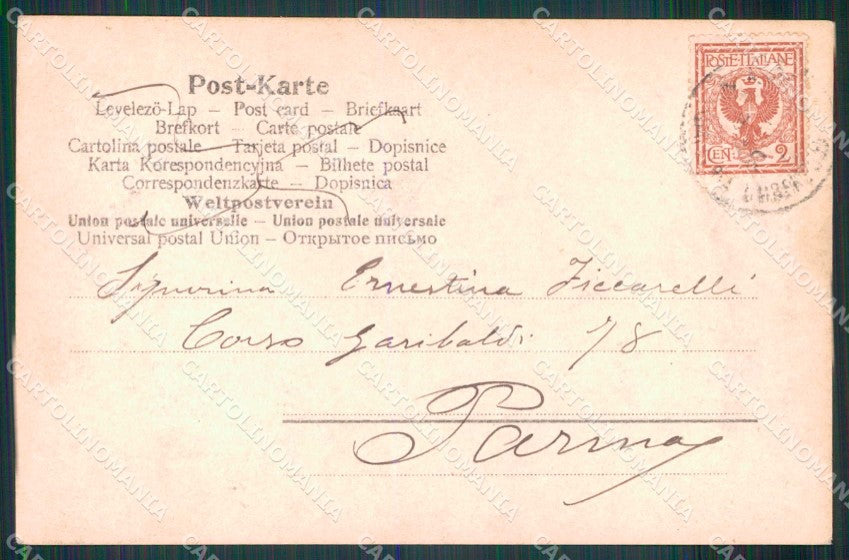 Post-Karte
Levelező-Lap – Post card – Briefkaart
Brefkort – Carte postale
Cartolina postale – Tarjeta postal – Dopisnice
Karta Korespondencyjna – Bilhete postal
Correspondenzkarte – Dopisnica
Weltpostverein
Union postale universelle – Union postale universale
Universal postal Union – Открытое письмо
POSTE·ITALIANE
CEN. 2
Signorina Ernestina Ziccarelli
Corso Garibaldi 78
Parma
CARTOLINOMANIA